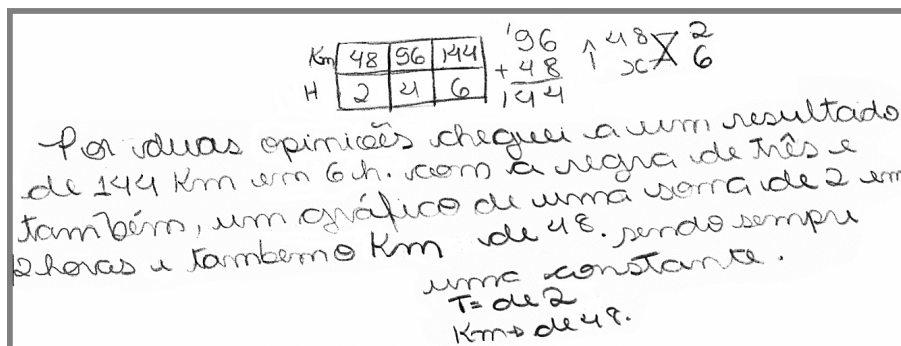 Km 48 96 144
H 2 4 6
'96
+ 48
144
↑ 48 2
x 6
Por duas opiniões cheguei a um resultado
de 144 Km em 6 h. com a regra de três e
também, um gráfico de uma soma de 2 em
2 horas e tambem o Km de 48. sendo sempre
uma constante.
T= de 2
Km→ de 48.